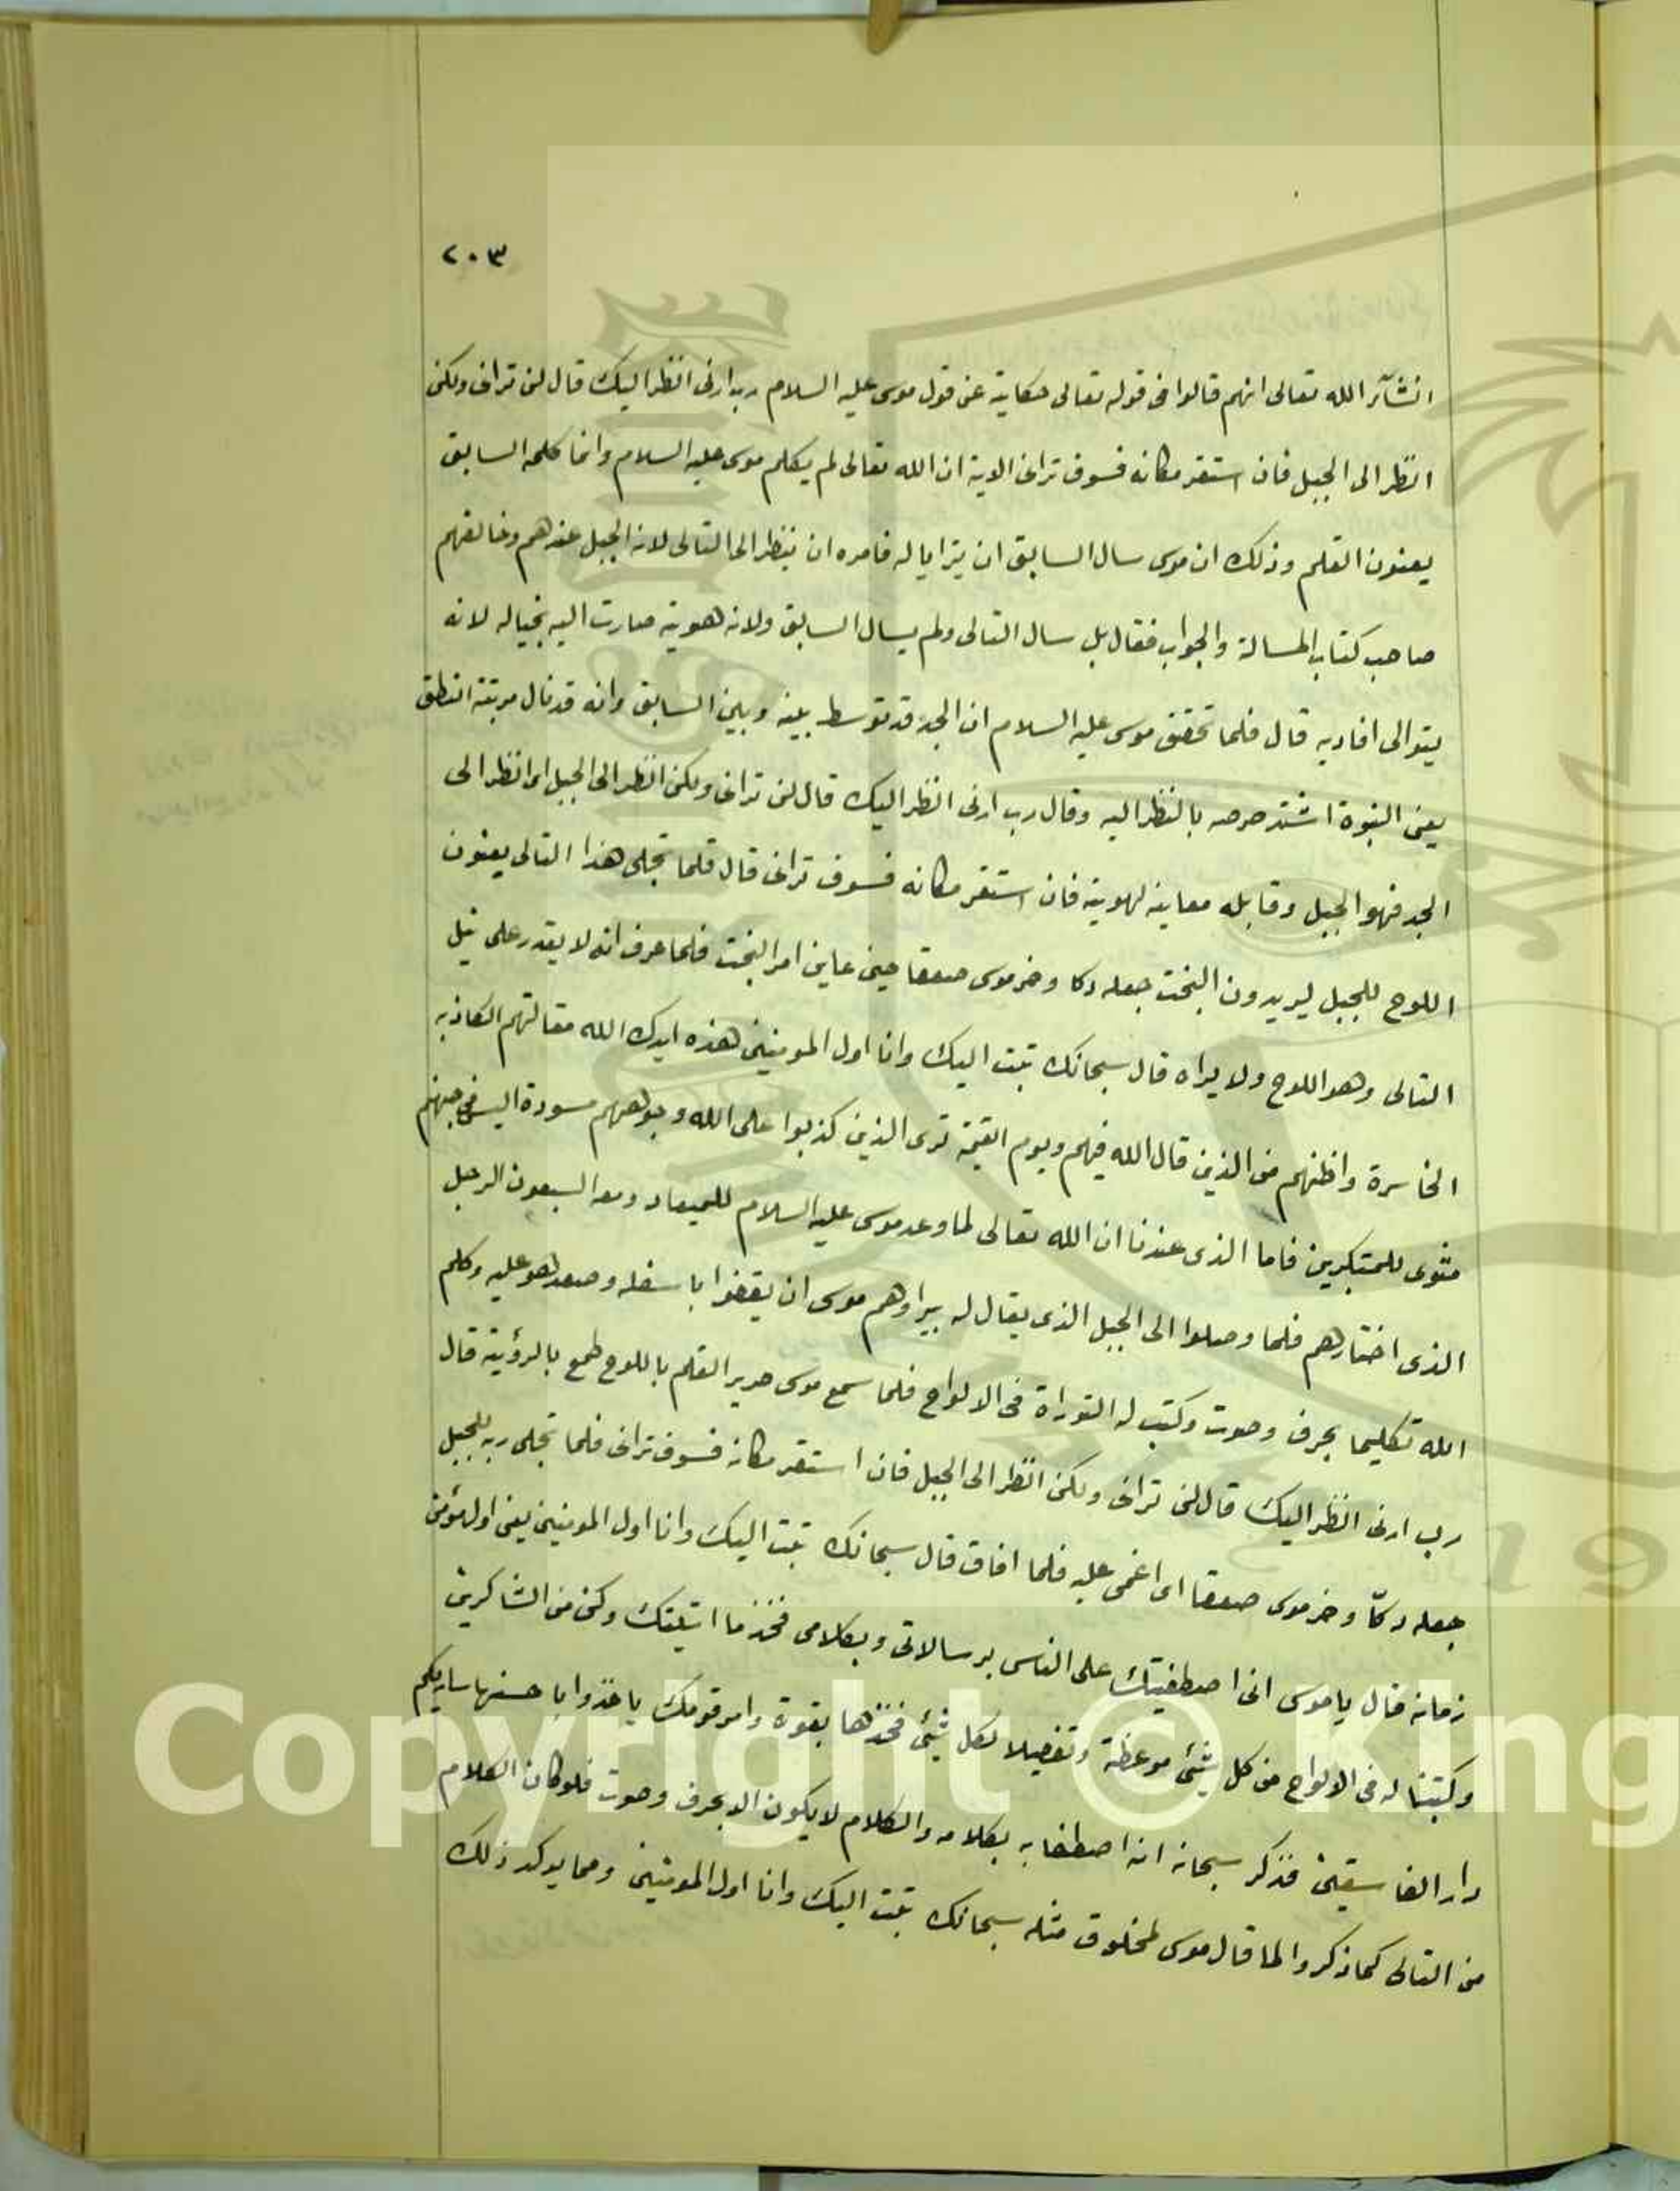 ٢٠٣
انشآء الله تعالى انهم قالوا فى قوله تعالى حكاية عن قول موسى عليه السلام رب ارنى انظر اليك قال لن ترانى ولكن
انظر الى الجبل فان استقر مكانه فسوف ترانى الاية ان الله تعالى لم يكلم موسى عليه السلام وانما كلمه السابق
يعنون القلم وذلك ان موسى سال السابق ان يترايا له فامره ان ينظر الى التالى لانه الجبل عندهم وخالفهم
صاحب كتاب المسالة والجواب فقال بل سال التالى ولم يسال السابق ولانه هوية صارت اليه بخياله لانه
يتوالى افاديه قال فلما تحقق موسى عليه السلام ان الجد قد توسط بينه وبين السابق وانه قد نال مرتبة النطق
يعنى النبوة اشتد حرصه بالنظر اليه وقال رب ارنى انظر اليك قال لن ترانى ولكن انظر الى الجبل اى انظر الى
الجد فهو الجبل وقابله معاينه لهويته فان استقر مكانه فسوف ترانى قال فلما تجلى هذا التالى يعنون
اللوح للجبل يريدون البخت جعله دكا وخر موسى صعقا حين عاين امر البخت فلما عرف انه لا يقدر على نيل
التالى وهو اللوح ولا يراه قال سبحانك تبت اليك وانا اول المومنين هذه ايدك الله مقالتهم الكاذبه
الخاسرة واظنهم من الذين قال الله فيهم ويوم القيمة ترى الذين كذبوا على الله وجوههم مسودة اليس فى جهنم
مثوى للمتكبرين فاما الذى عندنا ان الله تعالى لما وعد موسى عليه السلام للميعاد ومعه السبعون الرجل
الذى اختارهم فلما وصلوا الى الجبل الذى يقال له موسى ان يقفوا باسفله وصعد هو عليه وكلم
الله تكليما بحرف وصوت وكتب له التوراة فى الالواح فلما سمع موسى صرير القلم باللوح طمع بالرؤية قال
رب ارنى انظر اليك قال لن ترانى ولكن انظر الى الجبل فان استقر مكانه فسوف ترانى فلما تجلى ربه للجبل
جعله دكّا وخر موسى صعقا اى اغمى عليه فلما افاق قال سبحانك تبت اليك وانا اول المومنين يعنى اول مؤمنى
زمانه قال ياموسى انى اصطفيتك على الناس برسالاتى وبكلامى فخذ ما اتيتك وكن من الشاكرين
وكتبنا له فى الالواح من كل شئ موعظة وتفصيلا لكل شئ فخذها بقوة وامر قومك ياخذوا باحسنها ساريكم
دار الفاسقين فذكر سبحانه انه اصطفا به بكلامه والكلام لا يكون الا بحرف وصوت فلو كان الكلام
من التالى كما ذكروا لما قال موسى لمخلوق مثله سبحانك تبت اليك وانا اول المومنين ومما يوكد ذلك
Copyright © King